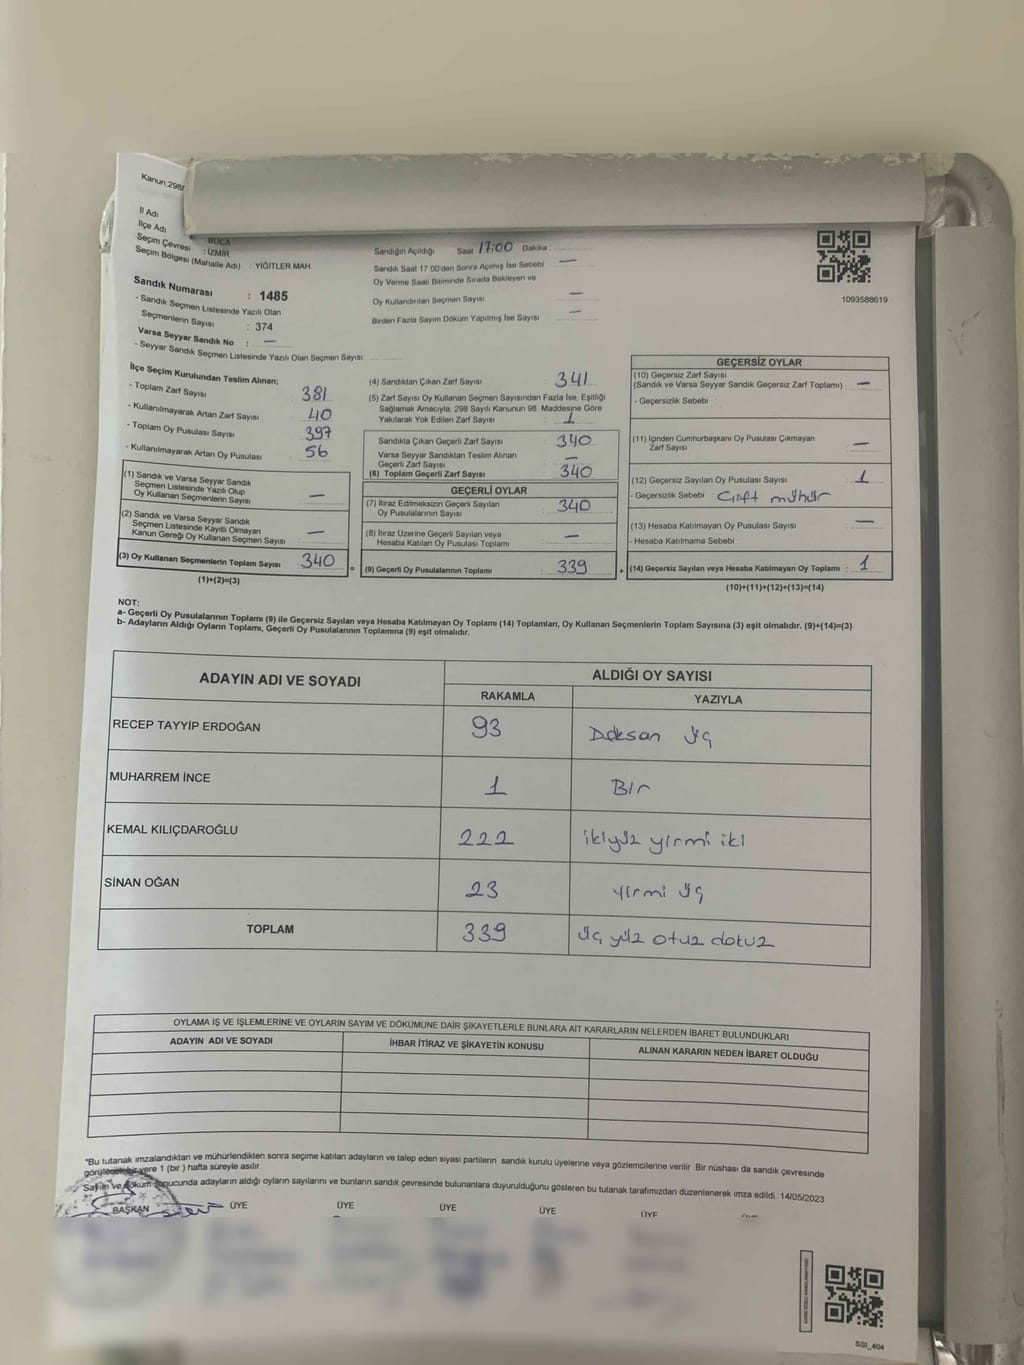 Kanun:298/
İl Adı
İlçe Adı : BUCA
Seçim Çevresi : İZMİR
Seçim Bölgesi (Mahalle Adı) : YİĞİTLER MAH.
Sandık Numarası : 1485
- Sandık Seçmen Listesinde Yazılı Olan
Seçmenlerin Sayısı : 374
Varsa Seyyar Sandık No : —
- Seyyar Sandık Seçmen Listesinde Yazılı Olan Seçmen Sayısı
Sandığın Açıldığı Saat 17:00 Dakika
Sandık Saat 17.00'den Sonra Açılmış İse Sebebi —
Oy Verme Saati Bitiminde Sırada Bekleyen ve
Oy Kullandırılan Seçmen Sayısı —
Birden Fazla Sayım Döküm Yapılmış İse Sayısı —
1093588619
İlçe Seçim Kurulundan Teslim Alınan;
- Toplam Zarf Sayısı 381
- Kullanılmayarak Artan Zarf Sayısı 40
- Toplam Oy Pusulası Sayısı 397
- Kullanılmayarak Artan Oy Pusulası 56
(1) Sandık ve Varsa Seyyar Sandık
Seçmen Listesinde Yazılı Olup
Oy Kullanan Seçmenlerin Sayısı —
(2) Sandık ve Varsa Seyyar Sandık
Seçmen Listesinde Kayıtlı Olmayan
Kanun Gereği Oy Kullanan Seçmen Sayısı —
(3) Oy Kullanan Seçmenlerin Toplam Sayısı : 340 =
(1)+(2)=(3)
(4) Sandıktan Çıkan Zarf Sayısı 341
(5) Zarf Sayısı Oy Kullanan Seçmen Sayısından Fazla İse, Eşitliği
Sağlamak Amacıyla, 298 Sayılı Kanunun 98. Maddesine Göre
Yakılarak Yok Edilen Zarf Sayısı : 1
Sandıkta Çıkan Geçerli Zarf Sayısı 340
Varsa Seyyar Sandıktan Teslim Alınan
Geçerli Zarf Sayısı —
(6) Toplam Geçerli Zarf Sayısı 340
GEÇERLİ OYLAR
(7) İtiraz Edilmeksizin Geçerli Sayılan
Oy Pusulalarının Sayısı : 340
(8) İtiraz Üzerine Geçerli Sayılan veya
Hesaba Katılan Oy Pusulası Toplamı —
(9) Geçerli Oy Pusulalarının Toplamı : 339 +
GEÇERSİZ OYLAR
(10) Geçersiz Zarf Sayısı
(Sandık ve Varsa Seyyar Sandık Geçersiz Zarf Toplamı) —
- Geçersizlik Sebebi :
(11) İçinden Cumhurbaşkanı Oy Pusulası Çıkmayan
Zarf Sayısı —
(12) Geçersiz Sayılan Oy Pusulası Sayısı 1
- Geçersizlik Sebebi : Çift mühür
(13) Hesaba Katılmayan Oy Pusulası Sayısı —
- Hesaba Katılmama Sebebi :
(14) Geçersiz Sayılan veya Hesaba Katılmayan Oy Toplamı : 1
(10)+(11)+(12)+(13)=(14)
NOT:
a- Geçerli Oy Pusulalarının Toplamı (9) ile Geçersiz Sayılan veya Hesaba Katılmayan Oy Toplamı (14) Toplamları, Oy Kullanan Seçmenlerin Toplam Sayısına (3) eşit olmalıdır. (9)+(14)=(3)
b- Adayların Aldığı Oyların Toplamı, Geçerli Oy Pusulalarının Toplamına (9) eşit olmalıdır.
ADAYIN ADI VE SOYADI ALDIĞI OY SAYISI
RAKAMLA YAZIYLA
RECEP TAYYİP ERDOĞAN 93 Doksan üç
MUHARREM İNCE 1 Bir
KEMAL KILIÇDAROĞLU 222 ikiyüz yirmi iki
SİNAN OĞAN 23 yirmi üç
TOPLAM 339 üç yüz otuz dokuz
OYLAMA İŞ VE İŞLEMLERİNE VE OYLARIN SAYIM VE DÖKÜMÜNE DAİR ŞİKAYETLERLE BUNLARA AİT KARARLARIN NELERDEN İBARET BULUNDUKLARI
ADAYIN ADI VE SOYADI İHBAR İTİRAZ VE ŞİKAYETİN KONUSU ALINAN KARARIN NEDEN İBARET OLDUĞU
"Bu tutanak imzalandıktan ve mühürlendikten sonra seçime katılan adayların ve talep eden siyasi partilerin sandık kurulu üyelerine veya gözlemcilerine verilir. Bir nüshası da sandık çevresinde
görülecek bir yere 1 (bir) hafta süreyle asılır.
Sayım ve döküm sonucunda adayların aldığı oyların sayılarını ve bunların sandık çevresinde bulunanlara duyurulduğunu gösteren bu tutanak tarafımızdan düzenlenerek imza edildi. 14/05/2023
BAŞKAN ÜYE ÜYE ÜYE ÜYE ÜYE
SSI_404